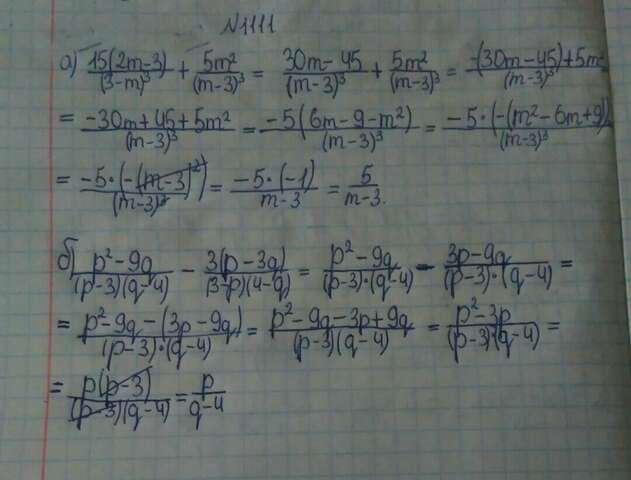 N1111
а) 15(2m-3)/(3-m)³ + 5m²/(m-3)³ = 30m-45/(m-3)³ + 5m²/(m-3)³ = -(30m-45)+5m²/(m-3)³
= -30m+45+5m²/(m-3)³ = -5(6m-9-m²)/(m-3)³ = -5·(-(m²-6m+9))/(m-3)³
= -5·(-(m-3)²)/(m-3)³ = -5·(-1)/m-3 = 5/m-3.
б) p²-9q/(p-3)(q-4) - 3(p-3q)/(3-p)(4-q) = p²-9q/(p-3)·(q-4) - 3p-9q/(p-3)·(q-4) =
= p²-9q-(3p-9q)/(p-3)·(q-4) = p²-9q-3p+9q/(p-3)(q-4) = p²-3p/(p-3)·(q-4) =
= p(p-3)/(p-3)(q-4) = p/q-4